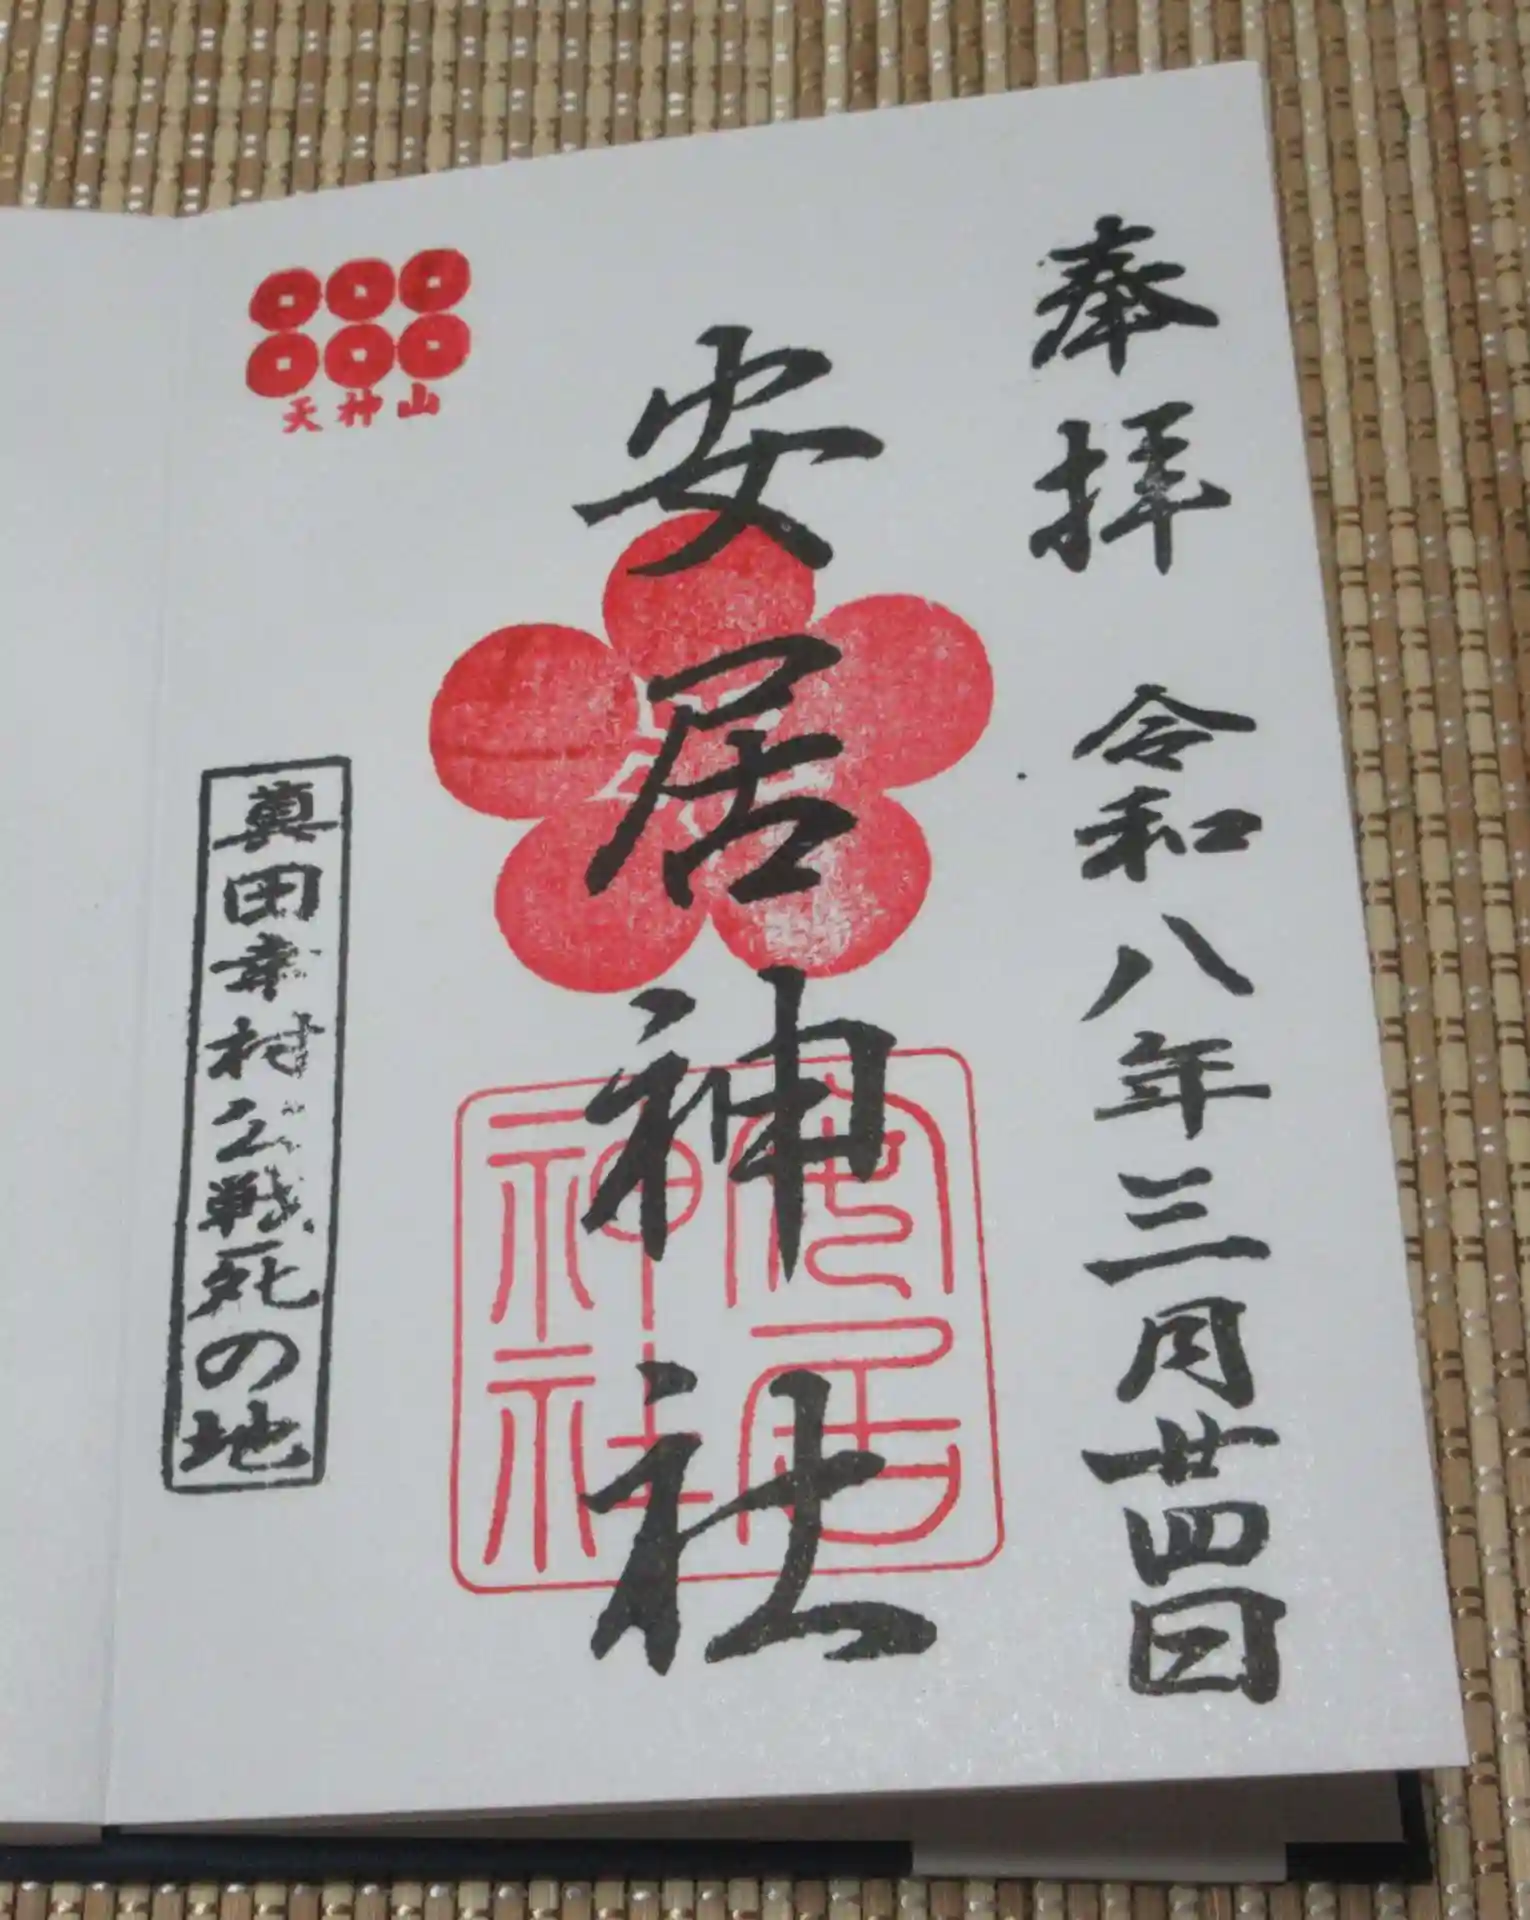 奉拝 令和八年三月廿四日
安居神社
安居
神社
天神山
真田幸村公戦死の地